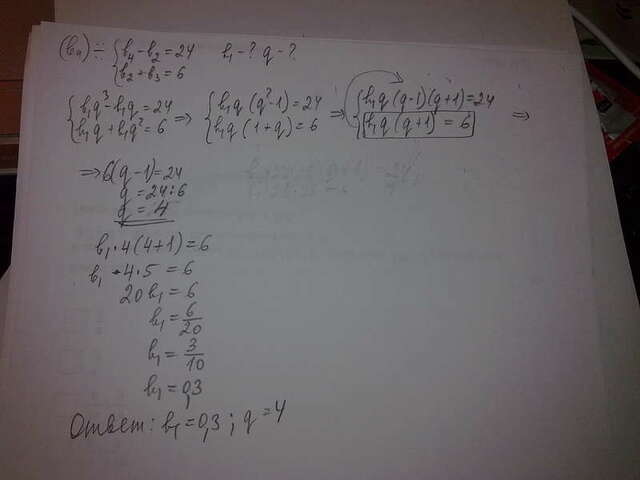 (bₙ) ÷ { b₄ - b₂ = 24 b₁ - ? q - ?
b₂ + b₃ = 6
{ b₁q³ - b₁q = 24 ⇒ { b₁q (q² - 1) = 24 ⇒ { b₁q (q-1)(q+1) = 24 ⇒
b₁q + b₁q² = 6 b₁q (1+q) = 6 b₁q (q+1) = 6
⇒ 6(q-1) = 24
q = 24:6
q = 4
b₁ · 4(4+1) = 6
b₁ · 4 · 5 = 6
20 b₁ = 6
b₁ = 6/20
b₁ = 3/10
b₁ = 0,3
Ответ: b₁ = 0,3 ; q = 4